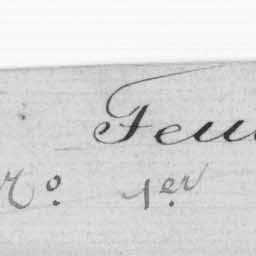 Feui
No. 1er.